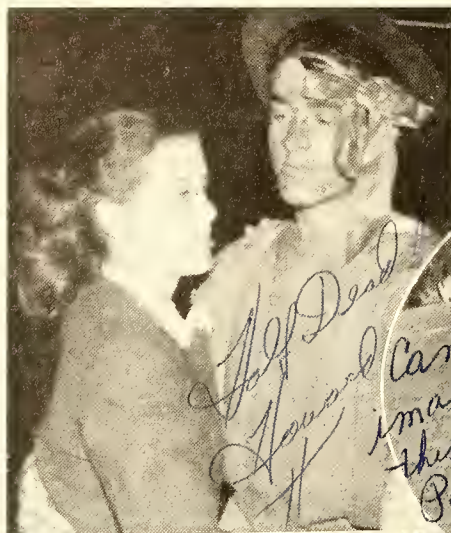 Half Dead
Howard
H
Can
ima
this
P